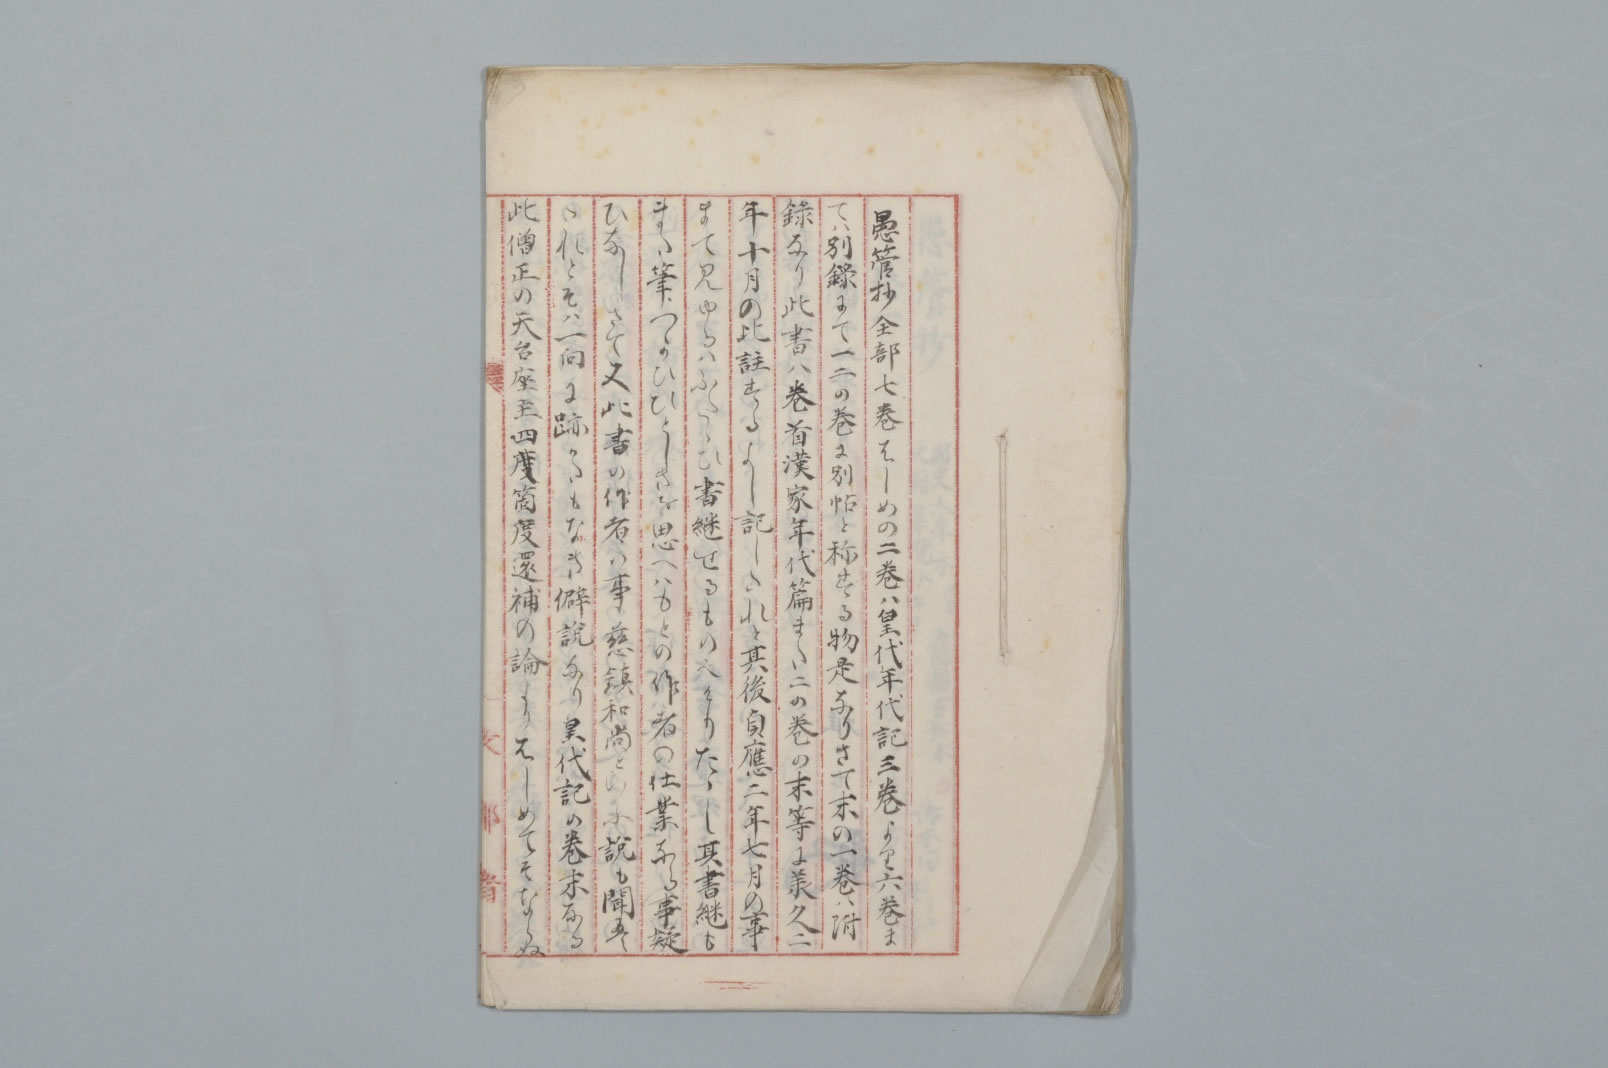 愚管抄全部七巻はしめの二巻ハ皇代年代記三巻より六巻ま
てハ別録にて一二の巻に別帖と称する物是なりさて末の一巻ハ附
録なり此書ハ巻首漢家年代篇また二の巻の末等に承久二
年十月の比註するよし記したれと其後貞應二年七月の事
まて見ゆるハふたゝひ書継せるものなりたゝし其書継も
また筆つかひひとしきを思へハもとの作者の仕業なる事疑
ひなしさて又此書の作者の事慈鎮和尚といふ説も聞え
たれとそハ一向に跡かたもなき僻説なり皇代記の巻末なる
此僧正の天台座主四度箇度還補の論よりはしめてそならぬ